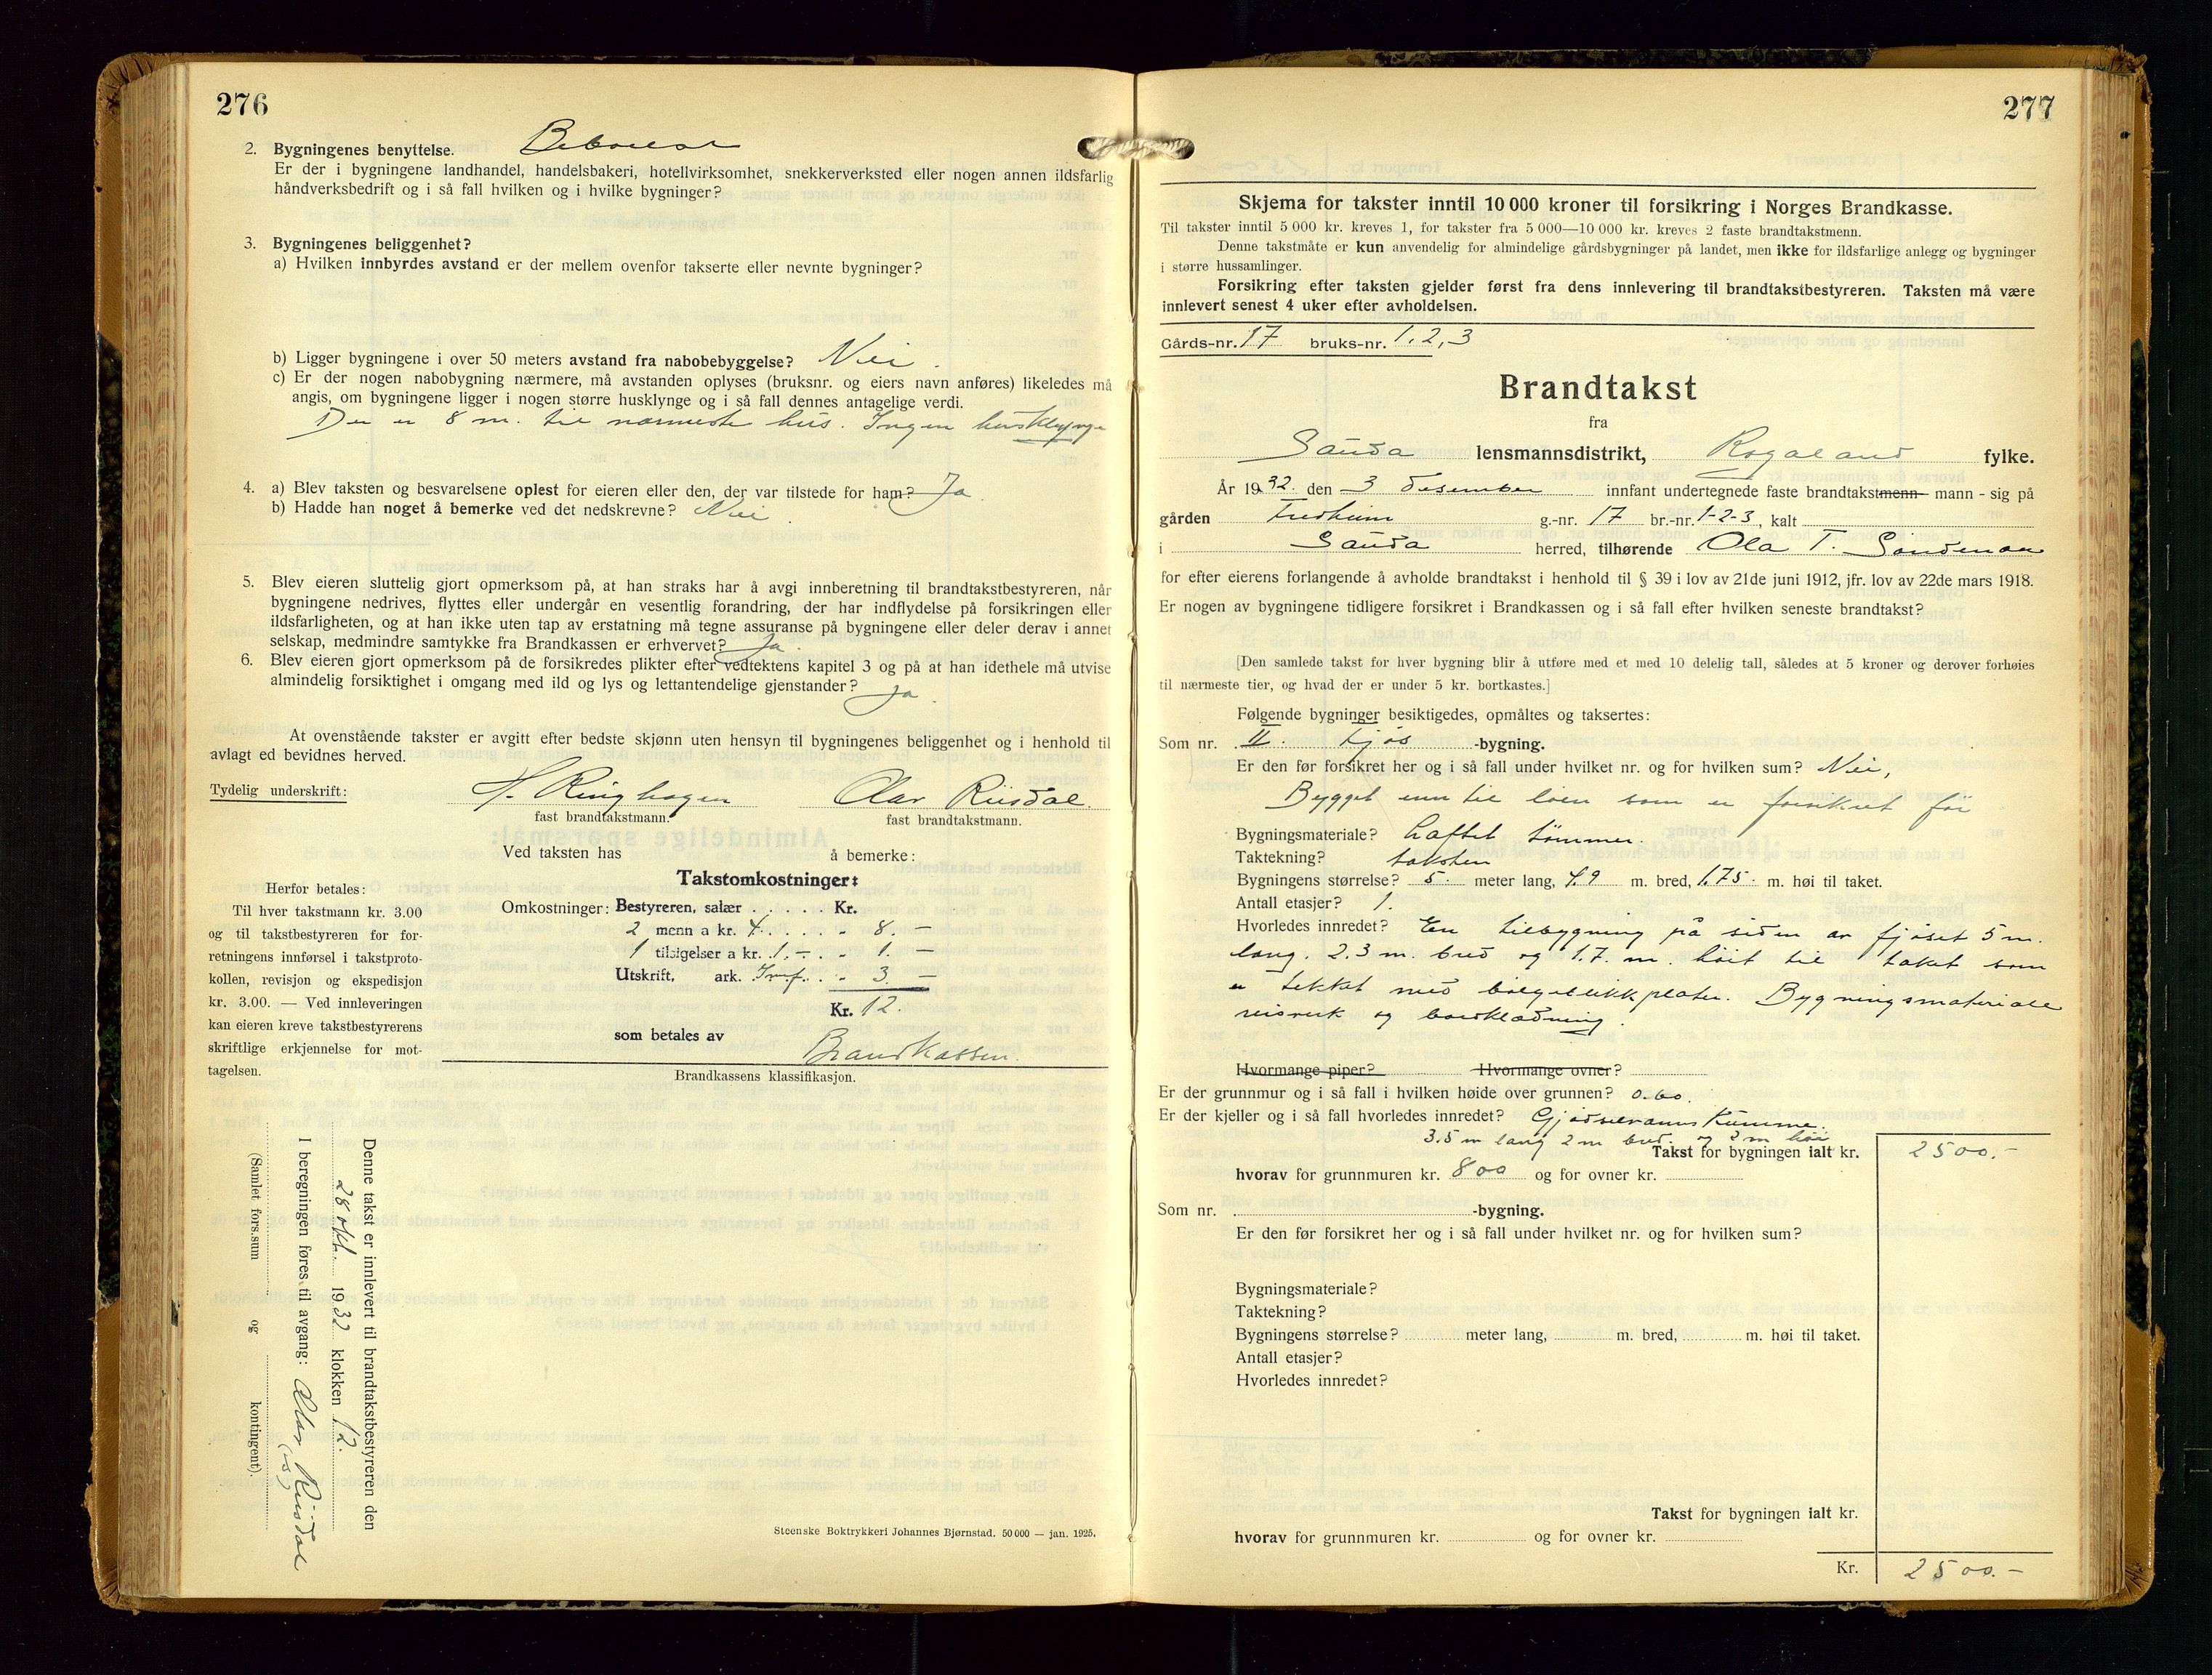 276
2. Bygningenes benyttelse. Beboelse
Er der i bygningene landhandel, handelsbakeri, hotellvirksomhet, snekkerverksted eller nogen annen ildsfarlig
håndverksbedrift og i så fall hvilken og i hvilke bygninger?
3. Bygningenes beliggenhet?
a) Hvilken innbyrdes avstand er der mellem ovenfor takserte eller nevnte bygninger?
b) Ligger bygningene i over 50 meters avstand fra nabobebyggelse? Nei.
c) Er der nogen nabobygning nærmere, må avstanden oplyses (bruksnr. og eiers navn anføres) likeledes må
angis, om bygningene ligger i nogen større husklynge og i så fall dennes antagelige verdi.
Der er 8 m. til nærmeste hus. Ingen husklynge
4. a) Blev taksten og besvarelsene oplest for eieren eller den, der var tilstede for ham? Ja.
b) Hadde han noget å bemerke ved det nedskrevne? Nei.
5. Blev eieren sluttelig gjort opmerksom på, at han straks har å avgi innberetning til brandtakstbestyreren, når
bygningene nedrives, flyttes eller undergår en vesentlig forandring, der har indflydelse på forsikringen eller
ildsfarligheten, og at han ikke uten tap av erstatning må tegne assuranse på bygningene eller deler derav i annet
selskap, medmindre samtykke fra Brandkassen er erhvervet? Ja.
6. Blev eieren gjort opmerksom på de forsikredes plikter efter vedtektens kapitel 3 og på at han idethele må utvise
almindelig forsiktighet i omgang med ild og lys og lettantendelige gjenstander? Ja.
At ovenstående takster er avgitt efter bedste skjønn uten hensyn til bygningenes beliggenhet og i henhold til
avlagt ed bevidnes herved.
Tydelig underskrift: H. Ringhagen Olav Riisdal.
fast brandtakstmann. fast brandtakstmann.
Ved taksten has å bemerke:
Takstomkostninger:
Herfor betales:
Til hver takstmann kr. 3.00
og til takstbestyreren for for-
retningens innførsel i takstproto-
kollen, revisjon og ekspedisjon
kr. 3.00. — Ved innleveringen
kan eieren kreve takstbestyrerens
skriftlige erkjennelse for mot-
tagelsen.
Omkostninger: Bestyreren, salær . . . . . Kr.
2 menn a kr. 4. . . . . „ 8. —
1 tilsigelser a kr. 1.- . „ 1. —
Utskrift, ark. Innf. . „ 3. —
Kr. 12.
som betales av Brandkassen.
Brandkassens klassifikasjon.
Denne takst er innlevert til brandtakstbestyreren den
28 okt. 1932 klokken 12.
I beregningen føres til avgang: Olav Riisdal
(s)
(Samlet fors.sum og kontingent).
Steenske Boktrykkeri Johannes Bjørnstad. 50 000 — jan. 1925.
277
Skjema for takster inntil 10 000 kroner til forsikring i Norges Brandkasse.
Til takster inntil 5 000 kr. kreves 1, for takster fra 5 000—10 000 kr. kreves 2 faste brandtakstmenn.
Denne takstmåte er kun anvendelig for almindelige gårdsbygninger på landet, men ikke for ildsfarlige anlegg og bygninger
i større hussamlinger.
Forsikring efter taksten gjelder først fra dens innlevering til brandtakstbestyreren. Taksten må være
innlevert senest 4 uker efter avholdelsen.
Gårds-nr. 17 bruks-nr. 1, 2, 3
Brandtakst
fra
Sauda lensmannsdistrikt, Rogaland fylke.
År 1932. den 3 desember innfant undertegnede faste brandtakstmenn- mann - sig på
gården g.-nr. 17 br.-nr. 1-2-3, kalt
i Sauda herred, tilhørende Ola T. Søndenaa
for efter eierens forlangende å avholde brandtakst i henhold til § 39 i lov av 21de juni 1912, jfr. lov av 22de mars 1918.
Er nogen av bygningene tidligere forsikret i Brandkassen og i så fall efter hvilken seneste brandtakst?
[Den samlede takst for hver bygning blir å utføre med et med 10 delelig tall, således at 5 kroner og derover forhøies
til nærmeste tier, og hvad der er under 5 kr. bortkastes.]
Følgende bygninger besiktigedes, opmåltes og taksertes:
Som nr. II. Fjøs -bygning.
Er den før forsikret her og i så fall under hvilket nr. og for hvilken sum? Nei,
Bygget inn til løen som er forsikret før
Bygningsmateriale? haftet tømmer.
Taktekning? taksten
Bygningens størrelse? 5. meter lang, 4.9 m. bred, 1.75. m. høi til taket.
Antall etasjer? 1.
Hvorledes innredet? En tilbygning på siden av fjøset 5 m.
lang. 2.3 m. bred og 1.7. m. høit til taket som
er tekket med bølgeblikkplater. Bygningsmateriale
reisverk og bordklædning.
Hvormange piper? Hvormange ovner?
Er der grunnmur og i så fall i hvilken høide over grunnen? 0.60.
Er der kjeller og i så fall hvorledes innredet? Gjødselvannskumme.
3.5 m lang 2 m bred. og 2 m høi
Takst for bygningen ialt kr. 2500.-
hvorav for grunnmuren kr. 800 og for ovner kr.
Som nr. -bygning.
Er den før forsikret her og i så fall under hvilket nr. og for hvilken sum?
Bygningsmateriale?
Taktekning?
Bygningens størrelse? meter lang, m. bred, m. høi til taket.
Antall etasjer?
Hvorledes innredet?
Takst for bygningen ialt kr.
hvorav for grunnmuren kr. og for ovner kr.
Kr. 2500.-